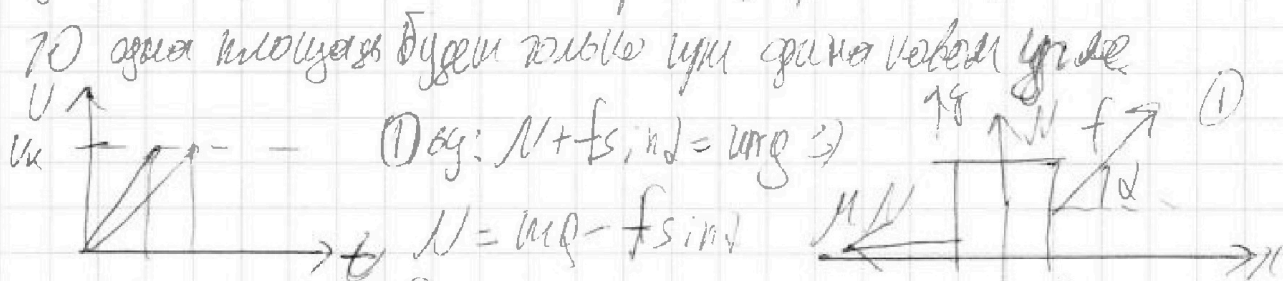 то одна площадь будет только при одинаковом угле
U
Uк
t
① oy: N + f sin α = mg ⇒
N = mg - f sin α
y N f ①
α
μN
x